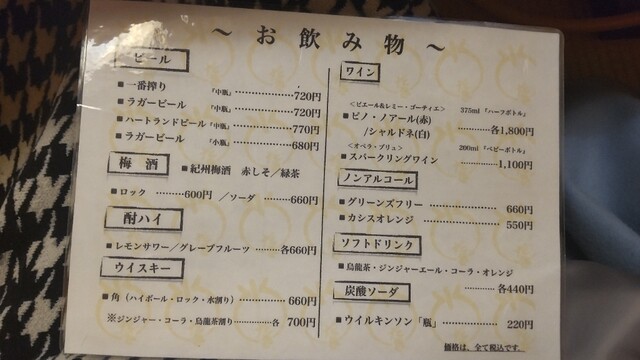 ～ お 飲 み 物 ～
ビール
■一番搾り 「中瓶」 ……………720円
■ラガービール 「中瓶」 ……………720円
■ハートランドビール「中瓶」 ………770円
■ラガービール 「小瓶」 ……………680円
梅 酒 ■紀州梅酒 赤しそ／緑茶
■ロック ………600円 ／ソーダ ………660円
酎ハイ
■レモンサワー／グレープフルーツ ………各660円
ウイスキー
■角（ハイボール・ロック・水割り）……………660円
※ジンジャー・コーラ・烏龍茶割り………各 700円
ワイン
＜ピエール&レミー・ゴーティエ＞ 375ml「ハーフボトル」
■ピノ・ノアール(赤)
/シャルドネ(白) ……………各1,800円
＜オペラ・ブリュ＞ 200ml「ベビーボトル」
■スパークリングワイン ……………1,100円
ノンアルコール
■グリーンズフリー ……………660円
■カシスオレンジ ……………550円
ソフトドリンク
■烏龍茶・ジンジャーエール・コーラ・オレンジ
………各440円
炭酸ソーダ
■ウイルキンソン「瓶」 ……………220円
価格は、全て税込です。